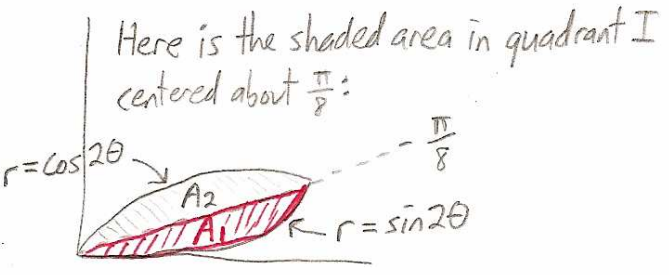 Here is the shaded area in quadrant I
centered about π/8:
π/8
r=cos2θ
A2
A1
r=sin2θ